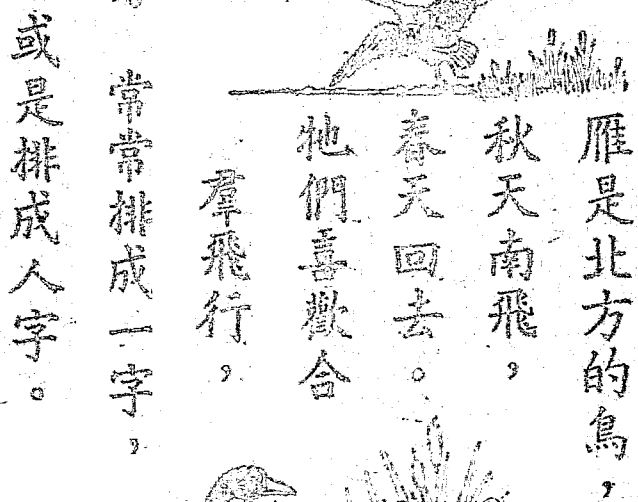 雁是北方的鳥，
秋天南飛，
春天回去。
牠們喜歡合
羣飛行，
常常排成一字，
或是排成人字。